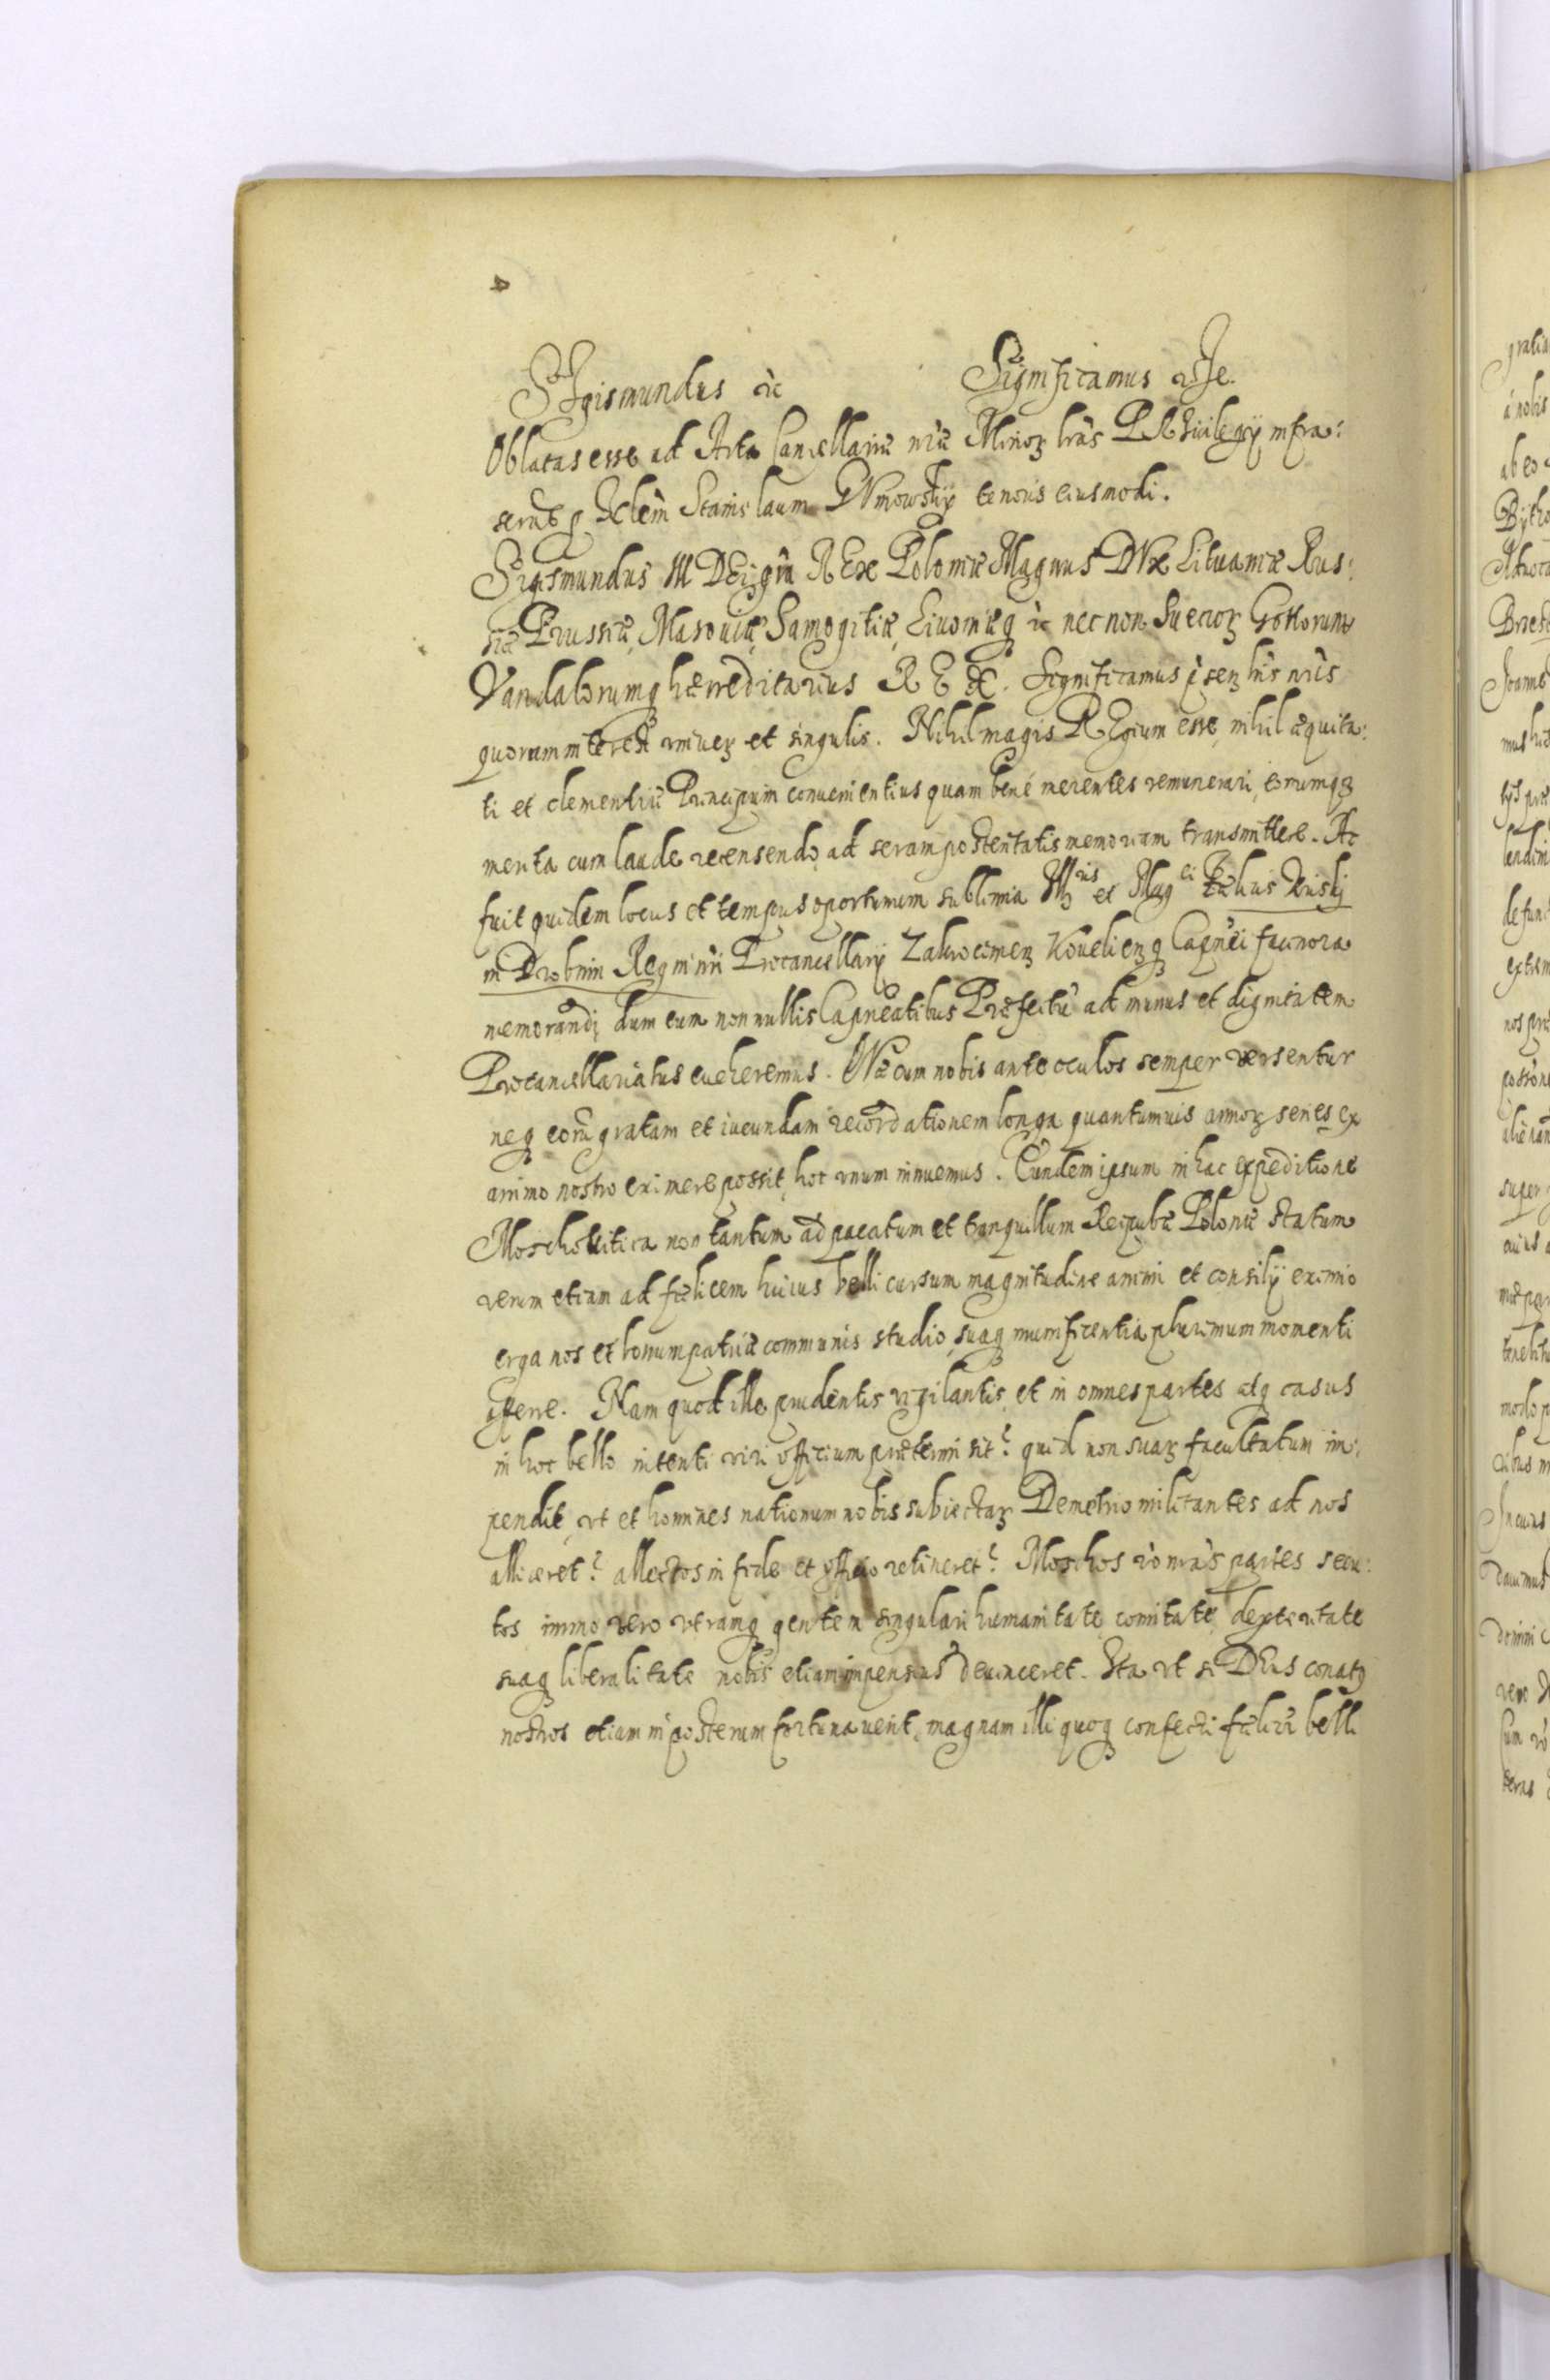 SIgismundus etc Significamus etc
Oblatas esse ad Acta Cancellariæ nræ Minoʒ lras PRiuilegij infra:
serus p Stanislaum tenoris eiusmodi.
Sigismundus III DEi gra REx Poloniæ Magnus DVx Lituaniæ Rus:
siæ Prussiæ, Masouiæ, Samogitiæ, Liuoniæq etc nec non Suecoʒ Gottorum
Vandalorumq hæreditarius REX. Significamus pseʒ lris nris
quorum interest vniueʒ et singulis. Nihil magis REgium esse, nihil æquita:
ti et clementiæ Principum conuenientius quam bene merentes remunerari, eorumqʒ
merita cum laude recensendo ad seram posteritatis memoriam transmittere. Ac
fuit quidem locus et tempus oportunum sublimia et Mag ci Kriski
in Drobnin Regni nri Procancellarij Zakrocimeʒ Kouelieʒq Capnei facinora
memorandi, dum eum nonnullis Capneatibus Præfectu ad munus et dignitatem
Procancellariatus eueheremus. Quæ cum nobis ante oculos semper versentur
neq eoru gratam et iucundam recordationem longa quantumuis annoʒ series ex
animo nostro eximere possit, hoc vnum innuemus. Eundem ipsum in hac expeditione
Moschouitica non tantum ad pacatum et tranquillum Reipubæ Polonæ statum
verum etiam ad fælicem huius belli cursum magnitudine animi et consilij eximio
erga nos et bonum patriæ communis studio, suaq munificentia plurimum momenti
afferre. Nam quod ille prudentis vigilantis, et in omnes partes atq casus
in hoc bello intenti viri officium prætermisit? quid non suaʒ facultatum im:
pendit, vt et homines nationum nobis subiectaʒ Demetrio militantes ad nos
alliceret? allectos in fide et officio retineret? Moschos vo nras partes secu:
tos immo vero vtramq gentem singulari humanitate, comitate, dexteritate
suaq liberalitate nobis etiam impensius deuinceret. Ita vt si DEus conatus
nostros etiam in posterum fortunauerit, magnam illi quoq confecti fæliciter belli